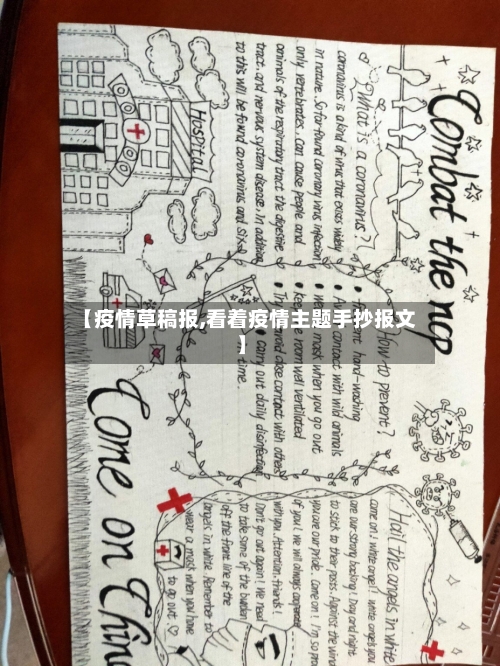 Combat the ncp
Hospital
What is a coronavirus?
coronavirus is a kind of virus that exists widely
in nature. So far found coronary virus infection
only vertebrates. Can cause people and
animals of the respiratory tract the digestive
tract, and nervous system disease. In addition,
to this will be found coronavirus and six
How to prevent?
hand-washing
contact with wild animals
mask when you go out
room well ventilated
close contact with others
Carry out daily disinfection
time.
【疫情草稿报,看着疫情主题手抄报文
】
Come on
Hail the angels in white
come on! white angel! white angels you
are our strong backing! Day and night
to stick to their posts. Against the wind
you are our pride. Come on! I'm so proud
of you! We will always cooperate
with you. Attention, friends!
Don't go out again! We need
to take some of the burden
off the front line of the
angels in white. Remember to
wear a mask when you have
to go out.